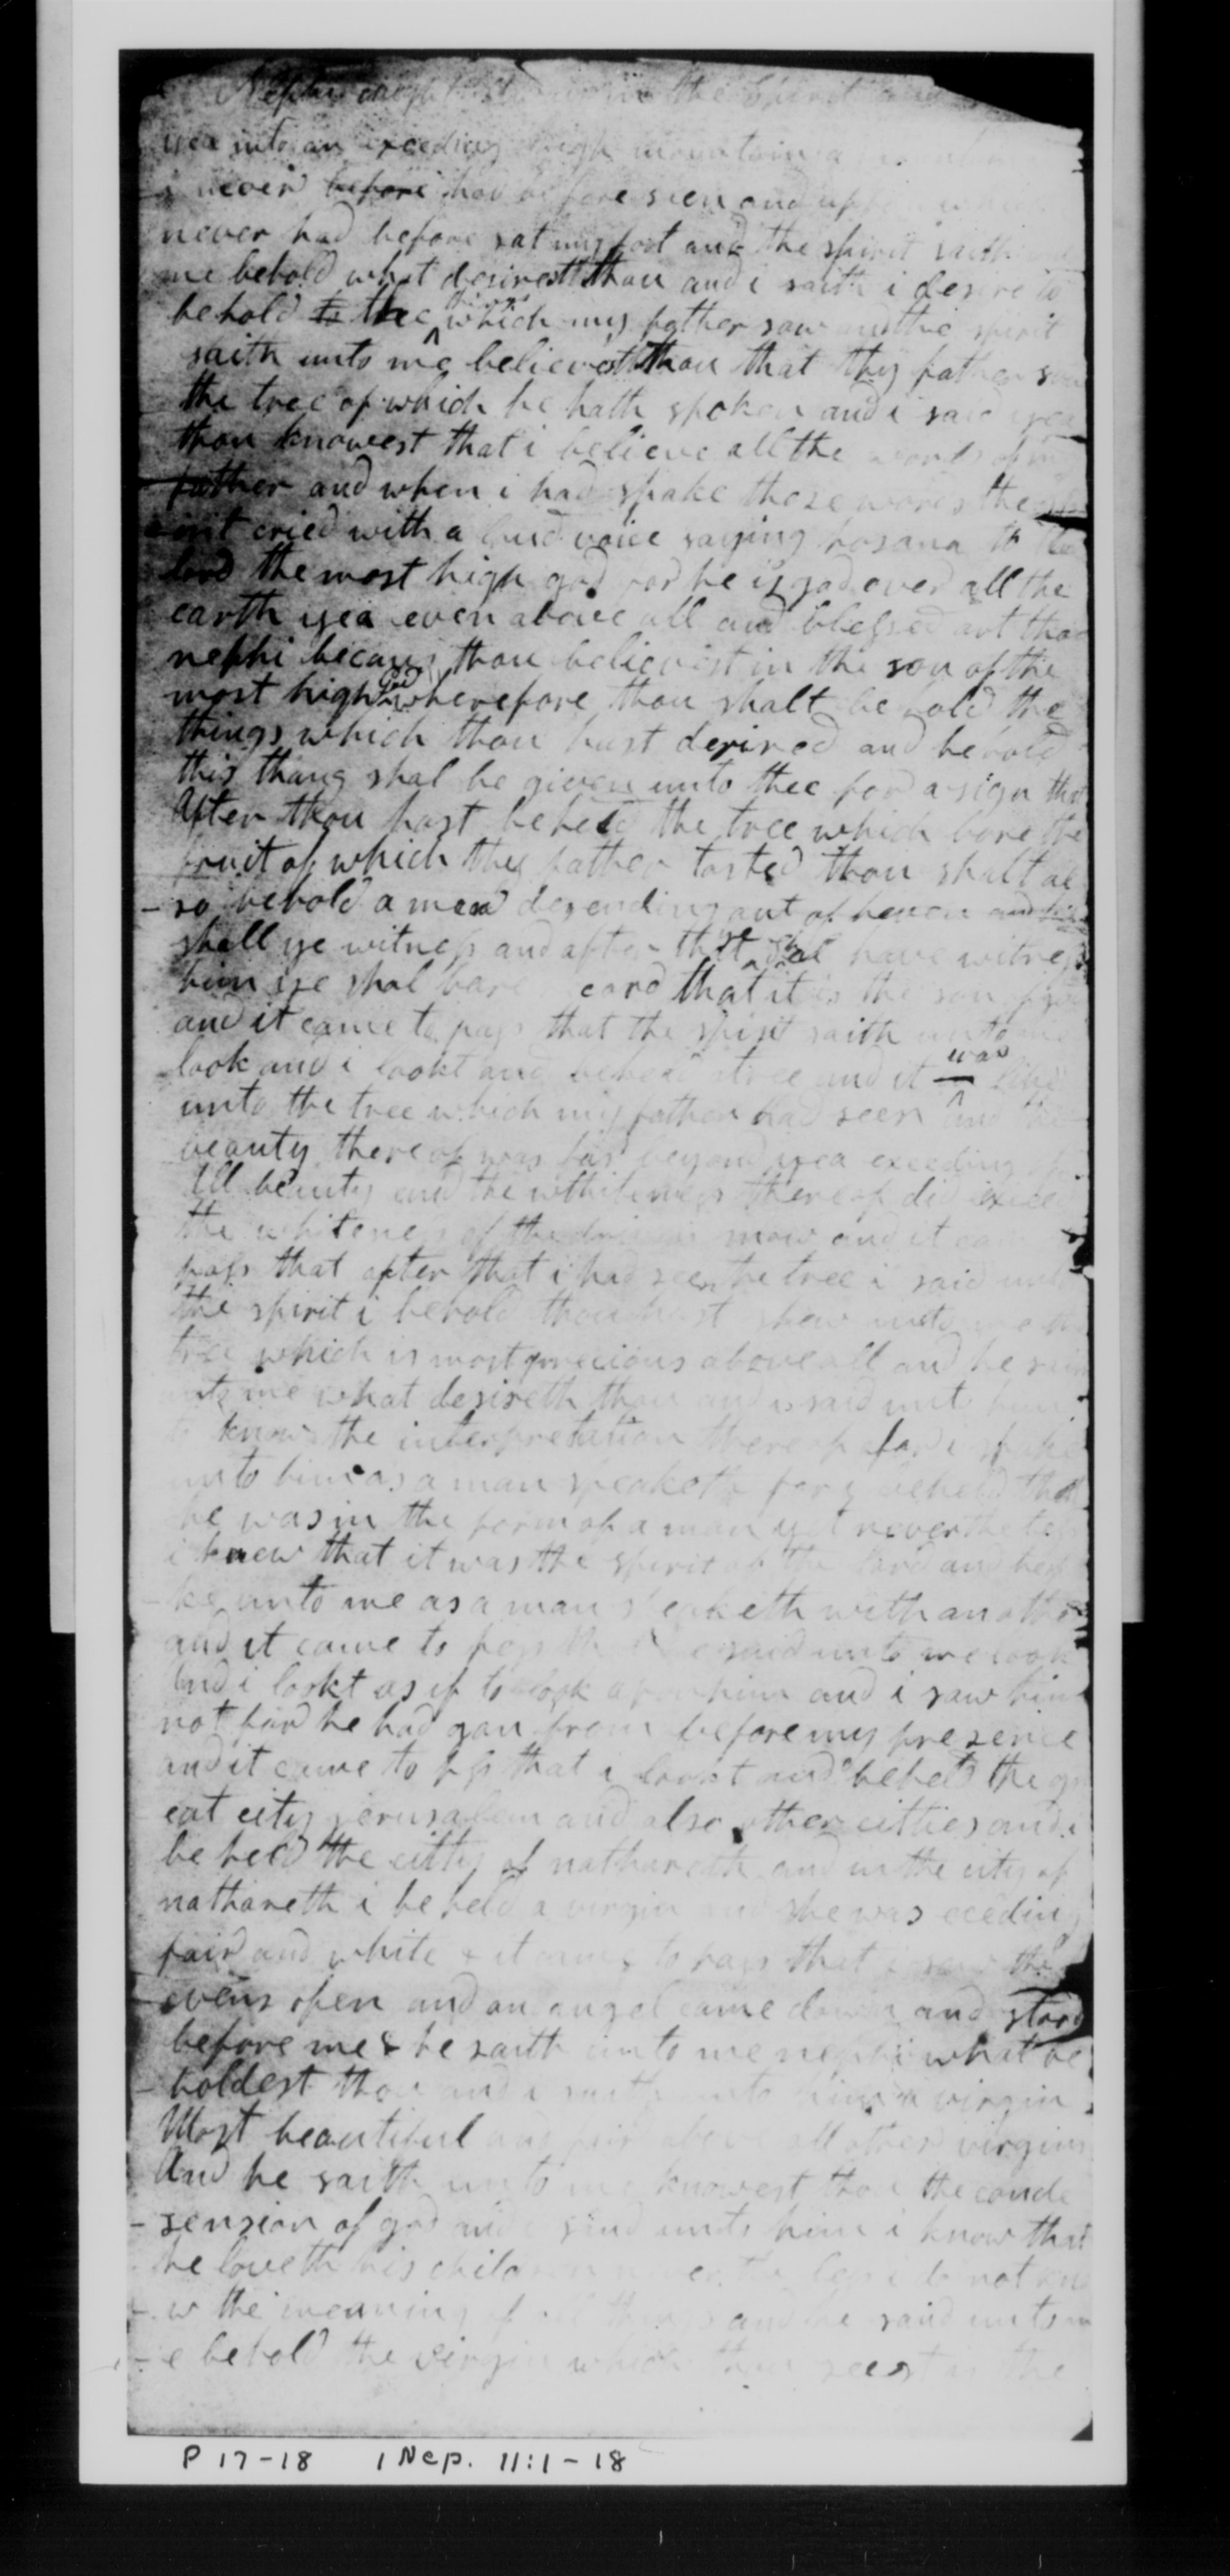 Nephi caught in the Spirit
yea into an exceeding high mountain a
i never before had before seen and uppon which
never had before sat my foot and the spirit saith
me behold what desirest thou and i saith i desire to
behold to the things which my father saw and the spirit
saith unto me believest thou that thy father saw
the tree of which he hath spoken and i said yea
thou knowest that i believe all the words of my
father and when i had spake these words the sp
irit cried with a loud voice saying hosana to the
lord the most high god for he is god over all the
earth yea even above all and blessed art thou
nephi becaus thou believest in the son of the
most high God wherefore thou shalt behold the
things which thou hast desired and behold
this thang shal be given unto thee for a sign that
After thou hast beheld the tree which bore the
fruit of which thy father tasted thou shalt al
- so behold a man desending out of heven and him
shall ye witness and after ye shal have witnessd
him ye shal bare cord that it is the son of god
and it came to pass that the spirit saith unto me
look and i lookt and beheld a tree and it was like
unto the tree which my father had seen and the
beauty thereof was far beyond yea exceeding
All beauty and the whiteness thereof did exceed
the whiteness of the driven snow and it came
pass that after that i had seen the tree i said unto
the spirit i behold thou hast shew unto me
tree which is most precious above all and he said
unto me what desireth thou and i said unto him
to know the interpretation thereof for i spake
unto him as a man speaketh for i beheld that
he was in the form of a man yet nevertheless
i knew that it was the spirit of the lord and he sp
- ke unto me as a man speaketh with another
and it came to pass that he said unto me look
And i lookt as if to look upon him and i saw him
not for he had gon from before my presence
and it came to pass that i lookt and beheld the gr
eat city jerusalem and also other citties and i
beheld the citty of nathareth and in the city of
nathareth i beheld a virgin and she was eceeding
fair and white & it came to pass that i saw the
- evens open and an angel came down and stood
before me & he saith unto me nephi what be
- holdest thou and i saith unto him a virgin
Most beautiful and fair above all other virgins
And he saith unto me knowest thou the conde
- sension of god and i said unto him i know that
he loveth his children nevertheless i do not kno
- w the meaning of all things and he said unto m
- e behold the virgin which thou seest is the
P 17-18 1 Nep. 11:1-18